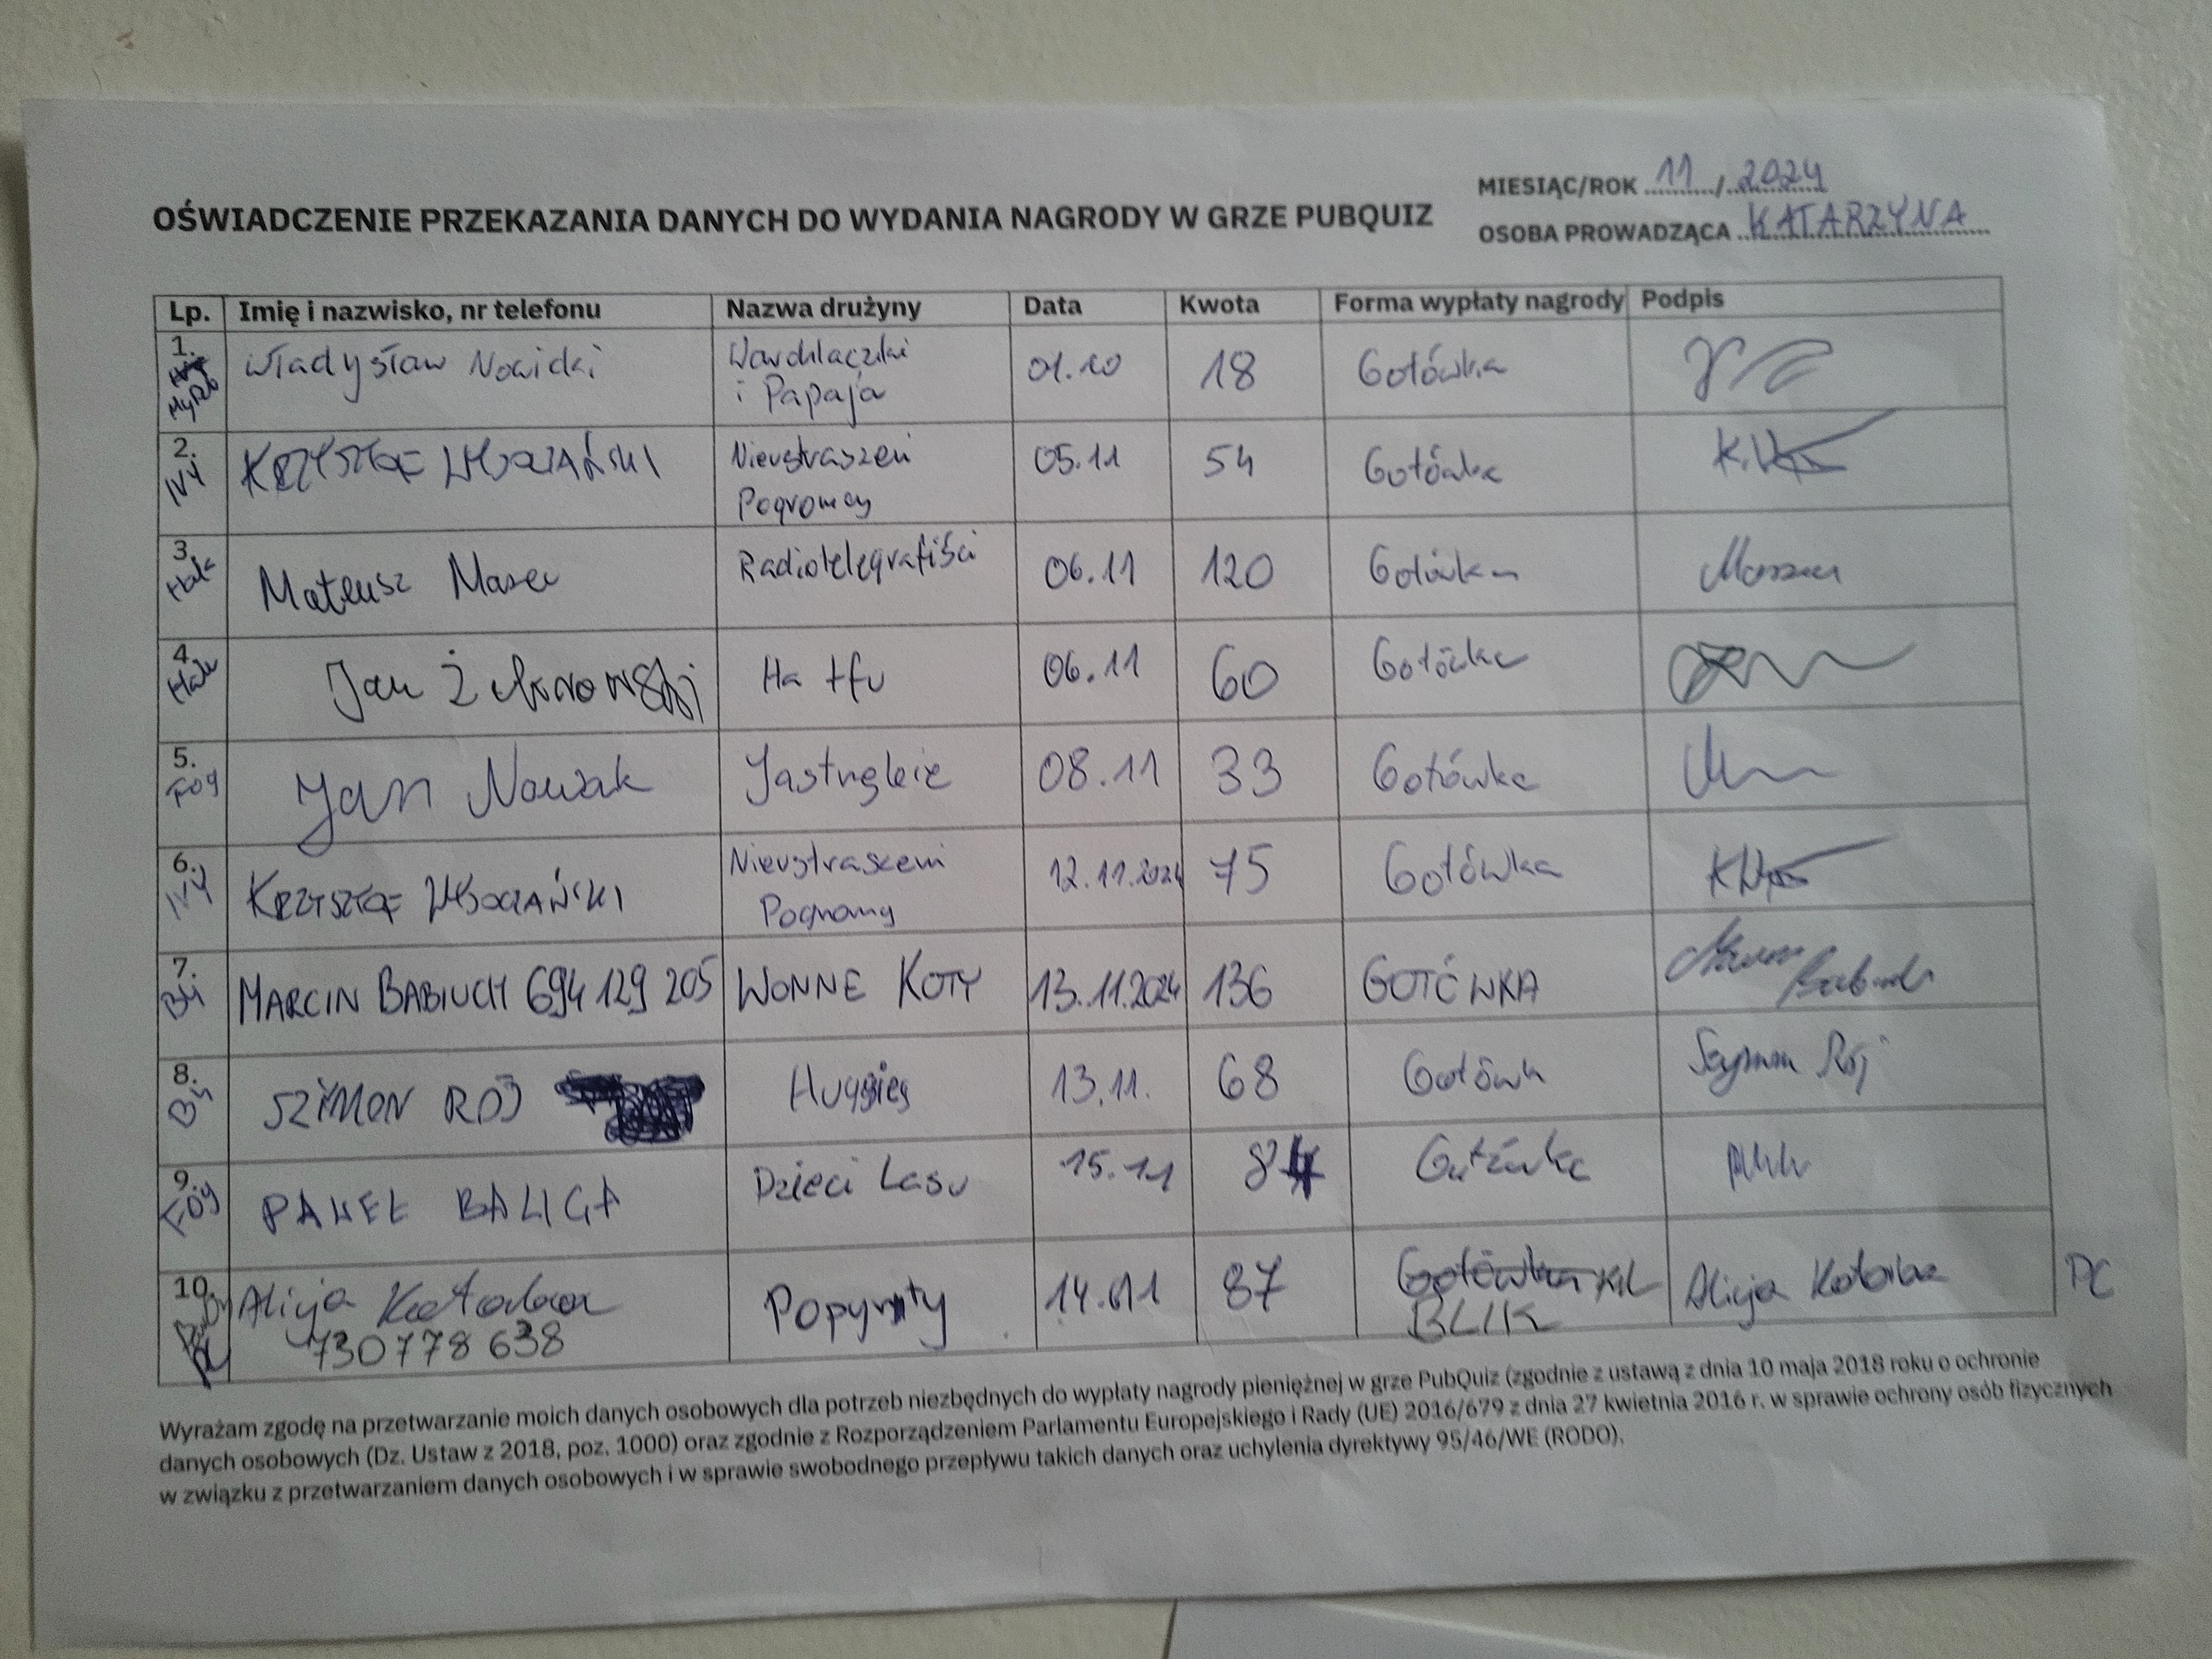 MIESIĄC/ROK 11 / 2024
OŚWIADCZENIE PRZEKAZANIA DANYCH DO WYDANIA NAGRODY W GRZE PUBQUIZ
OSOBA PROWADZĄCA KATARZYNA
Lp. Imię i nazwisko, nr telefonu Nazwa drużyny Data Kwota Forma wypłaty nagrody Podpis
1. Władysław Nowicki 01.10 18 Gotówka
i Papaja
2. IVY KRZYSZTOF Nieustraszeni 05.11 54 Gotówka
Pogromcy
3. Hala Mateusz Radiotelegrafiści 06.11 120 Gotówka
4. Hala Jan Ha tfu 06.11 60 Gotówka
5. FOY Jan Nowak Jastrzębie 08.11 33 Gotówka
6. IVY KRZYSZTOF Nieustraszeni 12.11.2024 75 Gotówka
Pogromcy
7. BY MARCIN BABIUCH 694 129 205 WONNE KOTY 13.11.2024 136 GOTÓWKA
8. BY SZYMON RÓJ 13.11. 68 Gotówka Szymon Rój
9. FOY PAWEŁ BALIGA Dzieci Lasu 15.11 84 Gotówka
10. Alicja Popyrty 14.11 87 Gotówka Alicja PC
730 778 638 BLIK
Wyrażam zgodę na przetwarzanie moich danych osobowych dla potrzeb niezbędnych do wypłaty nagrody pieniężnej w grze PubQuiz (zgodnie z ustawą z dnia 10 maja 2018 roku o ochronie
danych osobowych (Dz. Ustaw z 2018, poz. 1000) oraz zgodnie z Rozporządzeniem Parlamentu Europejskiego i Rady (UE) 2016/679 z dnia 27 kwietnia 2016 r. w sprawie ochrony osób fizycznych
w związku z przetwarzaniem danych osobowych i w sprawie swobodnego przepływu takich danych oraz uchylenia dyrektywy 95/46/WE (RODO).